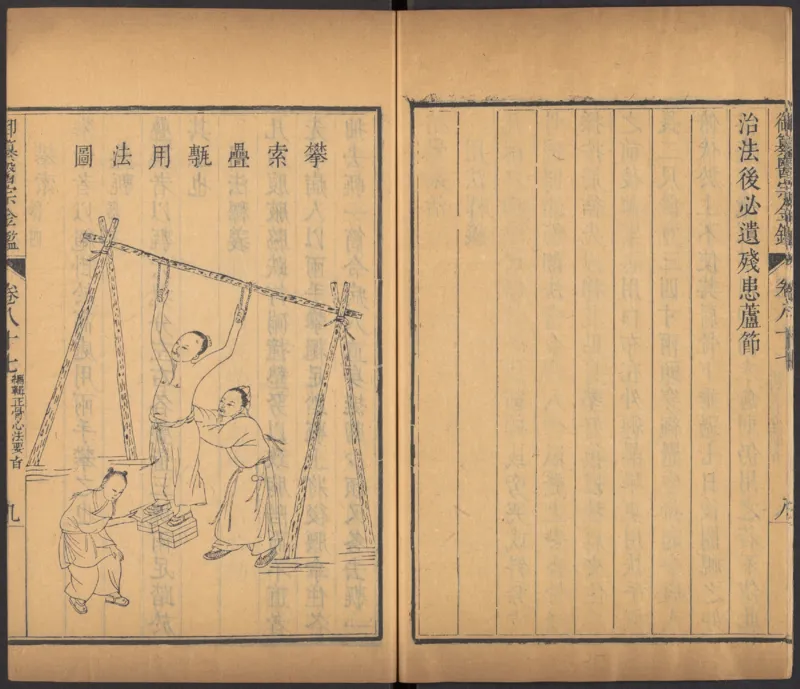 御纂醫宗金鑑 卷八十七 八
治法後必遺殘患蘆節
攀索疊甎用法圖
御纂醫宗金鑑 卷八十七 編輯正骨心法要旨 九